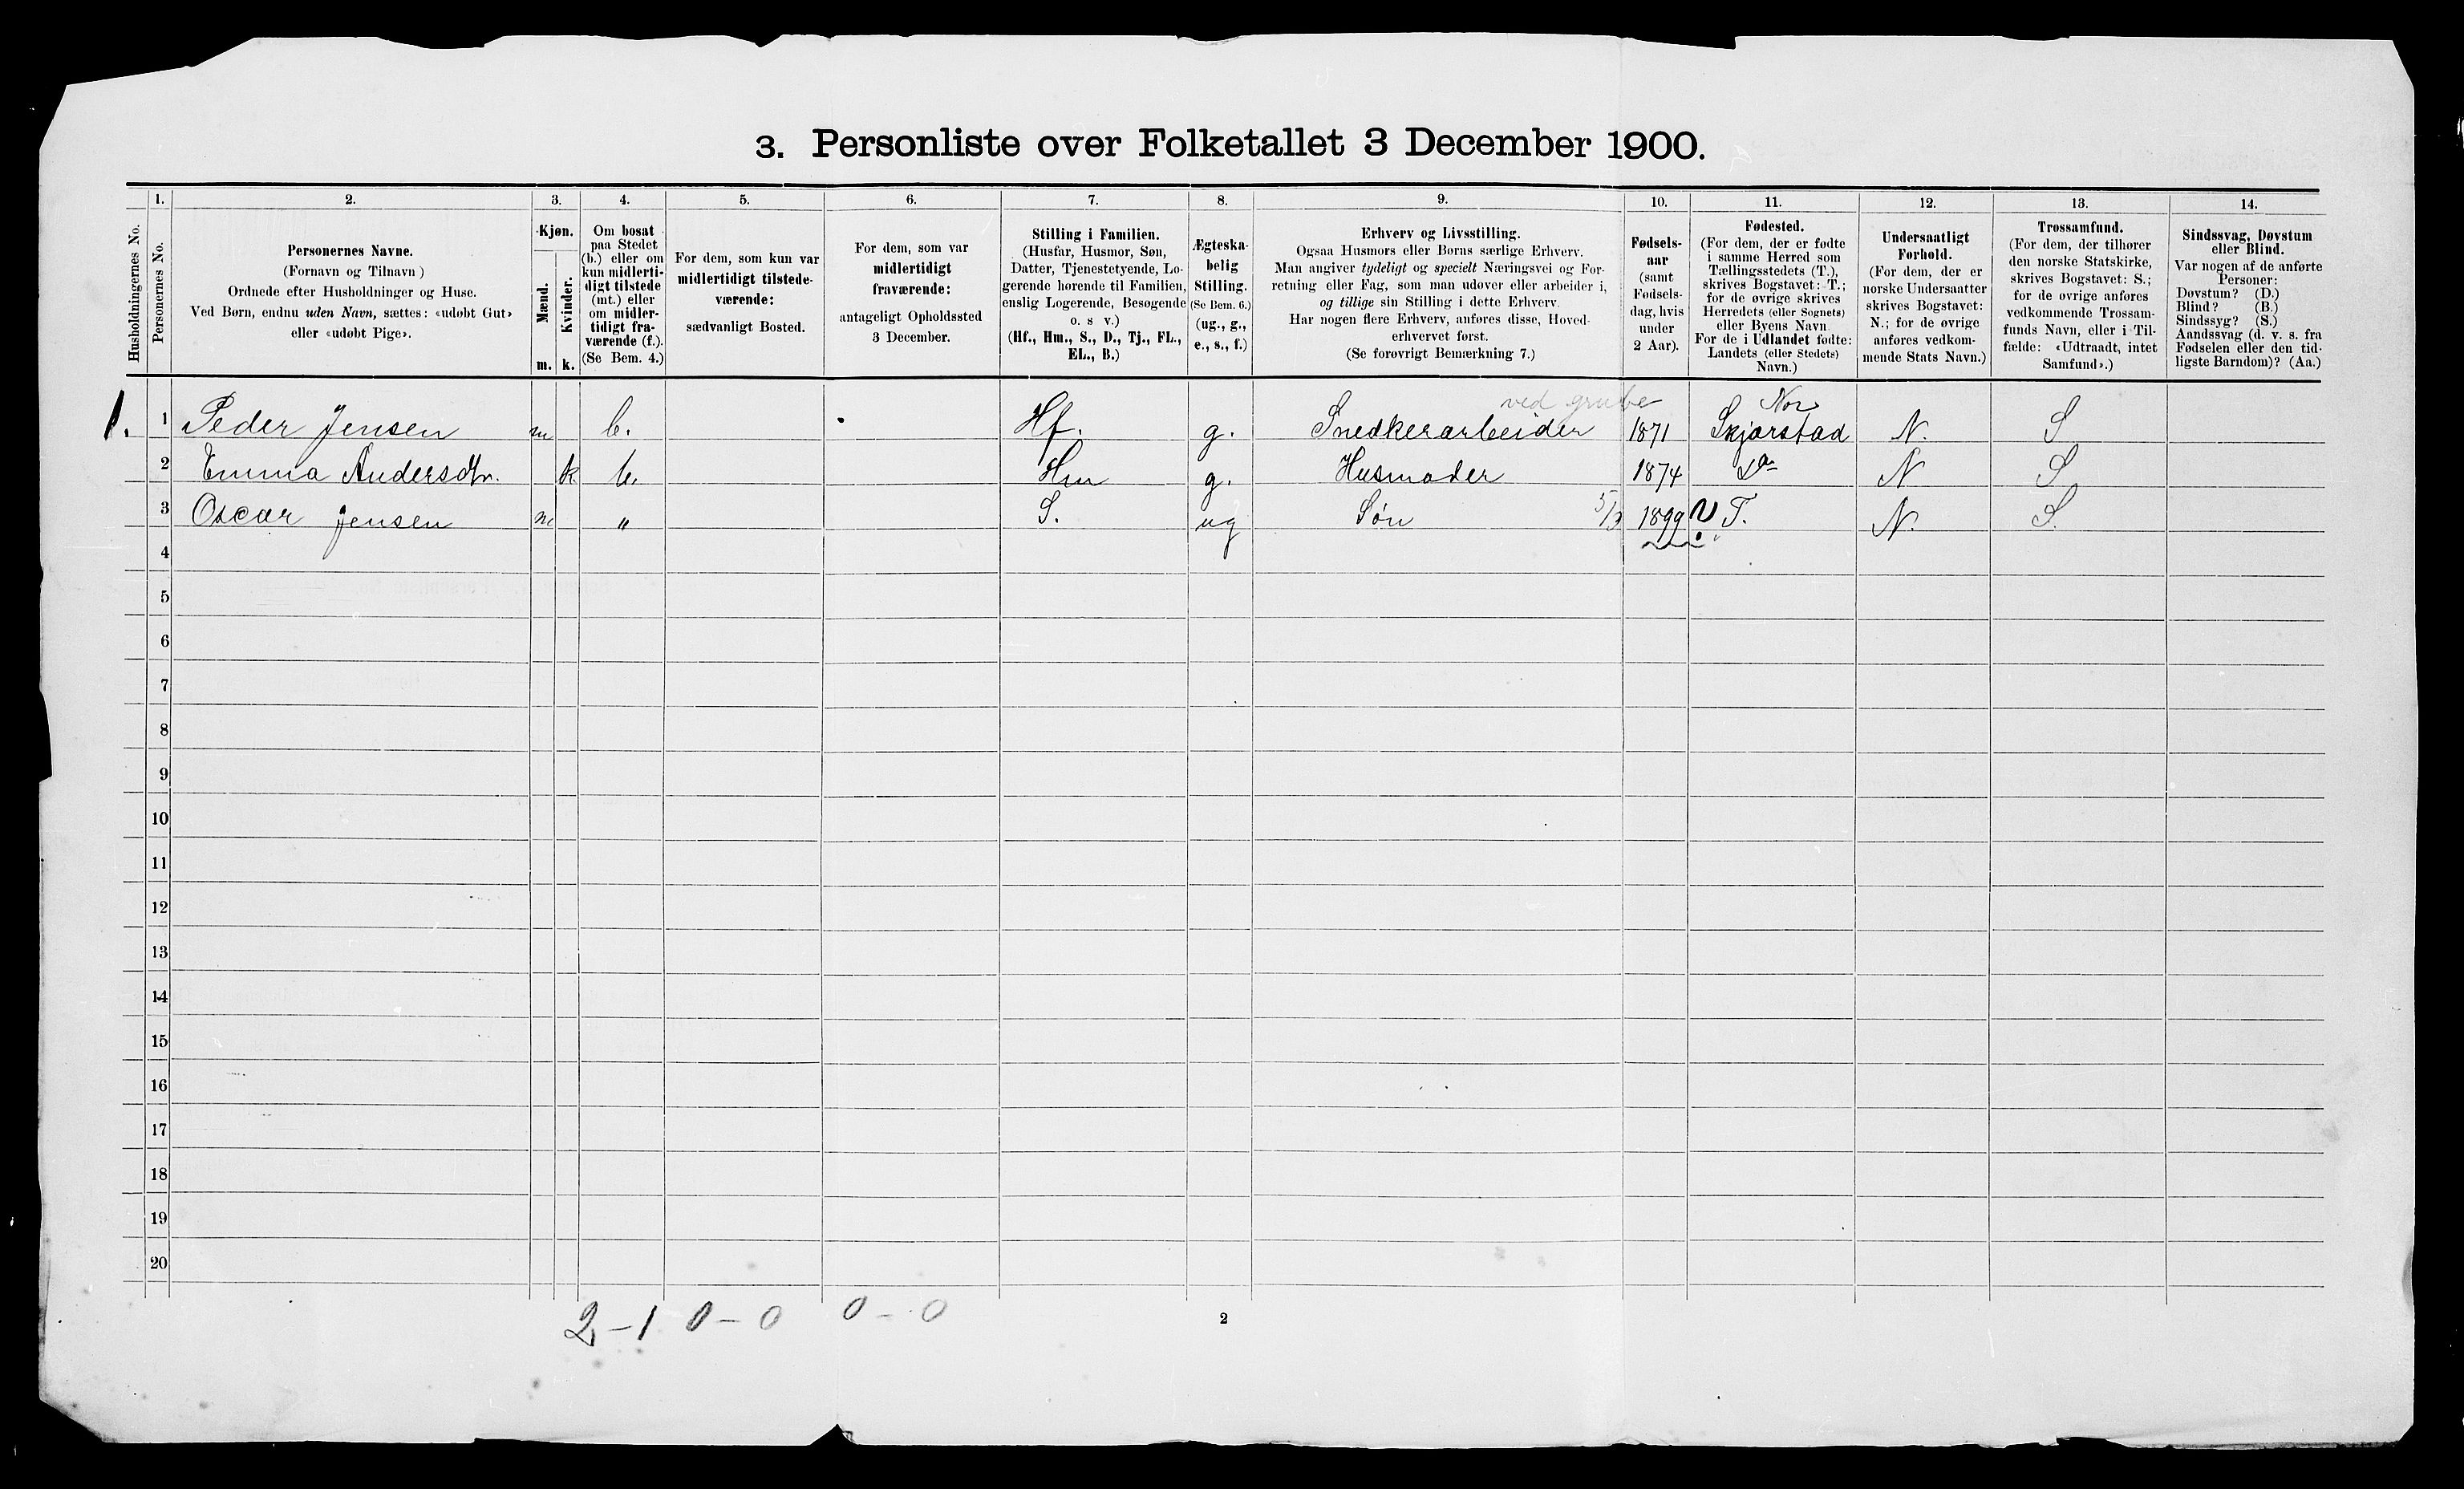 3. Personliste over Folketallet 3 December 1900.
Husholdningernes No.
1.
Personernes No.
2.
Personernes Navne.
(Fornavn og Tilnavn)
Ordnede efter Husholdninger og Huse.
Ved Børn, endnu uden Navn, sættes: «udøbt Gut»
eller «udøbt Pige».
3.
Kjøn.
Mænd.
m.
Kvinder.
k.
4.
Om bosat
paa Stedet
(b.) eller om
kun midlerti-
digt tilstede
(mt.) eller
om midler-
tidigt fra-
værende (f.).
(Se Bem. 4.)
5.
For dem, som kun var
midlertidigt tilstede-
værende:
sædvanligt Bosted.
6.
For dem, som var
midlertidigt
fraværende:
antageligt Opholdssted
3 December.
7.
Stilling i Familien.
(Husfar, Husmor, Søn,
Datter, Tjenestetyende, Lo-
gerende hørende til Familien,
enslig Logerende, Besøgende
o. s v.)
(Hf., Hm., S., D., Tj., FL.,
EL., B.)
8.
Ægteska-
belig
Stilling.
(Se Bem. 6.)
(ug., g.,
e., s., f.)
9.
Erhverv og Livsstilling.
Ogsaa Husmors eller Børns særlige Erhverv.
Man angiver tydeligt og specielt Næringsvei og For-
retning eller Fag, som man udøver eller arbeider i,
og tillige sin Stilling i dette Erhverv.
Har nogen flere Erhverv, anføres disse, Hoved-
erhvervet først.
(Se forøvrigt Bemærkning 7.)
10.
Fødsels-
aar
(samt
Fødsels-
dag, hvis
under
2 Aar).
11.
Fødested.
(For dem, der er fødte
i samme Herred som
Tællingsstedets (T.),
skrives Bogstavet: T.;
for de øvrige skrives
Herredets (eller Sognets)
eller Byens Navn.
For de i Udlandet fødte:
Landets (eller Stedets)
Navn.)
12.
Undersaatligt
Forhold.
(For dem, der er
norske Undersaatter
skrives Bogstavet:
N.; for de øvrige
anføres vedkom-
mende Stats Navn.)
13.
Trossamfund.
(For dem, der tilhører
den norske Statskirke,
skrives Bogstavet: S.;
for de øvrige anføres
vedkommende Trossam-
funds Navn, eller i Til-
fælde: «Udtraadt, intet
Samfund».)
14.
Sindssvag, Døvstum
eller Blind.
Var nogen af de anførte
Personer:
Døvstum? (D.)
Blind? (B.)
Sindssyg? (S.)
Aandssvag (d. v. s. fra
Fødselen eller den tid-
ligste Barndom)? (Aa.)
ved grube Nor
1. 1 Peder Jensen m b. Hf. g. Snedkerarbeider 1871 Skjærstad N. S
2 Emma Andersdtr. k b. Hm g. Husmoder 1874 Do N S
3 Oscar Jensen m " S. ug Søn 5/3 1899 T. N. S.
4
5
6
7
8
9
10
11
12
13
14
15
16
17
18
19
20
2-1 0-0 0-0
2